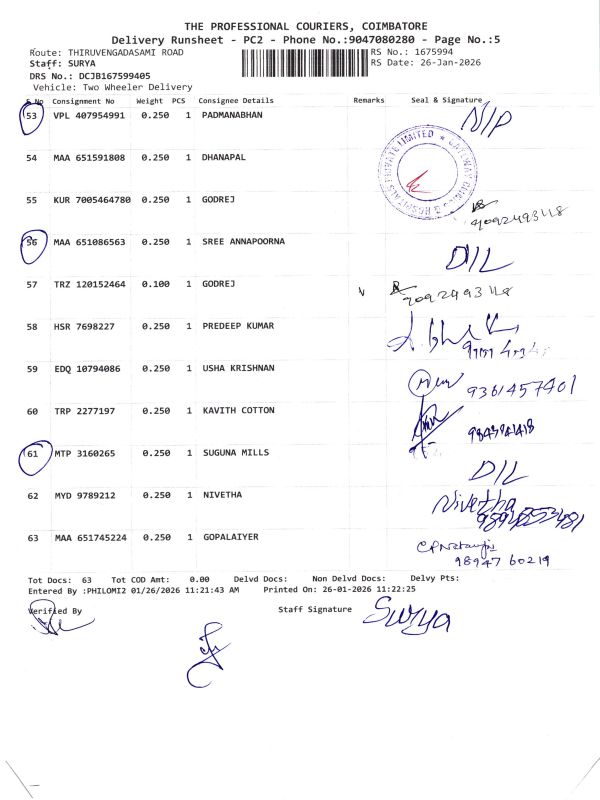 THE PROFESSIONAL COURIERS, COIMBATORE
Delivery Runsheet - PC2 - Phone No.:9047080280 - Page No.:5
Route: THIRUVENGADASAMI ROAD RS No.: 1675994
Staff: SURYA RS Date: 26-Jan-2026
DRS No.: DCJB167599405
Vehicle: Two Wheeler Delivery
S.No Consignment No Weight PCS Consignee Details Remarks Seal & Signature
53 VPL 407954991 0.250 1 PADMANABHAN N/P
54 MAA 651591808 0.250 1 DHANAPAL
PRIVATE LIMITED ★ GATEWAY
55 KUR 7005464780 0.250 1 GODREJ
56 MAA 651086563 0.250 1 SREE ANNAPOORNA D/L
57 TRZ 120152464 0.100 1 GODREJ
58 HSR 7698227 0.250 1 PREDEEP KUMAR
59 EDQ 10794086 0.250 1 USHA KRISHNAN 9361457401
60 TRP 2277197 0.250 1 KAVITH COTTON
61 MTP 3160265 0.250 1 SUGUNA MILLS D/L
62 MYD 9789212 0.250 1 NIVETHA Nivetha
63 MAA 651745224 0.250 1 GOPALAIYER
98947 60219
Tot Docs: 63 Tot COD Amt: 0.00 Delvd Docs: Non Delvd Docs: Delvy Pts:
Entered By :PHILOMI2 01/26/2026 11:21:43 AM Printed On: 26-01-2026 11:22:25
Verified By Staff Signature Surya